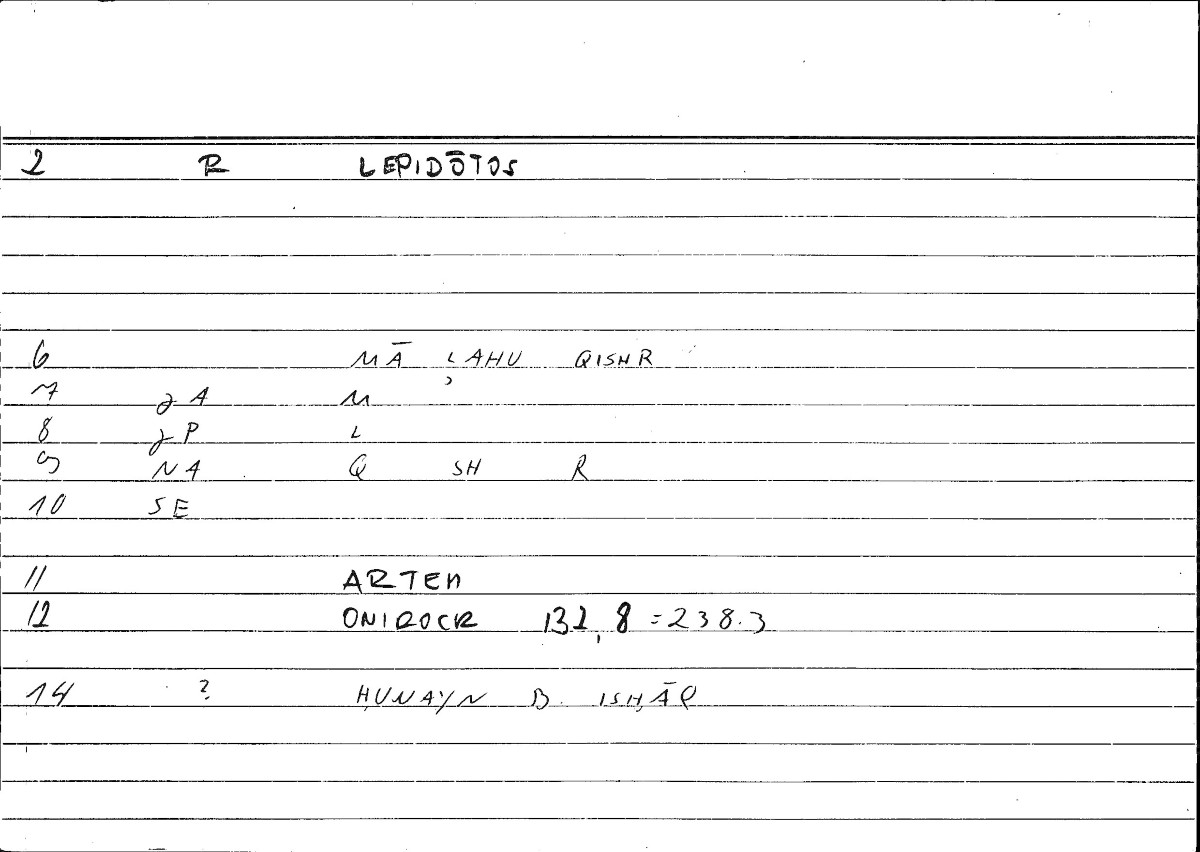 2 R LEPIDŌTOS
6 MĀ LAHU QISHR
7 zA M
8 zP L
9 NA Q SH R
10 SE
11 ARTEM
12 ONIROCR 132,8 = 238.3
14 ? ḤUNAYN B. ISḤĀQ